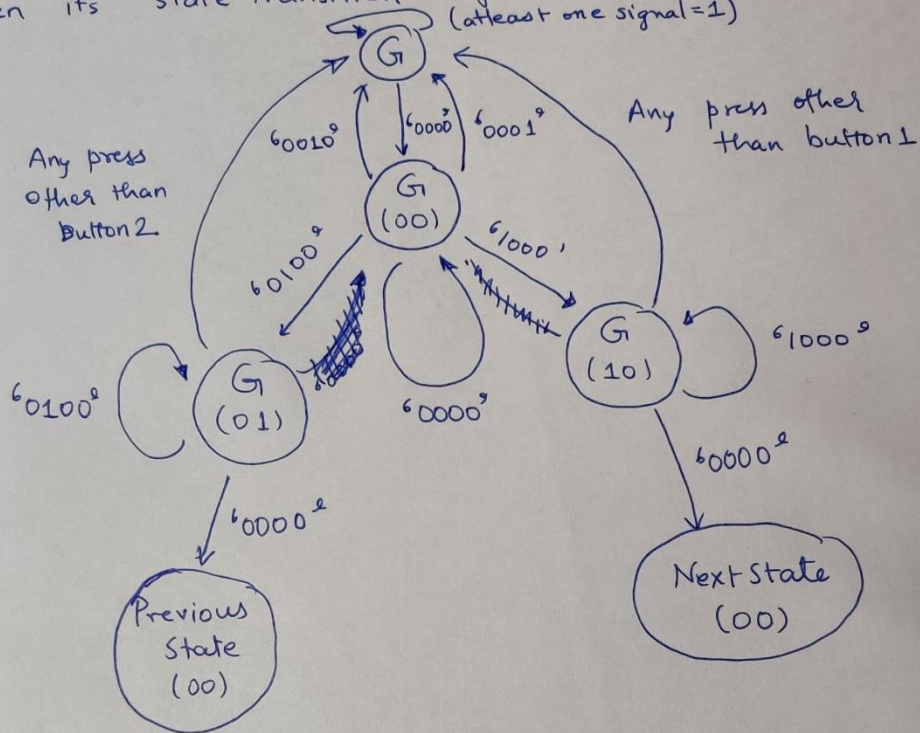 its state
(atleast one signal=1)
G
'0010'
'0000'
'0001'
Any press other
than button 1
Any press
other than
Button 2
G
(00)
'0100'
'1000'
G
(10)
'1000'
G
(01)
'0100'
'0000'
'0000'
'0000'
Next State
(00)
Previous
State
(00)